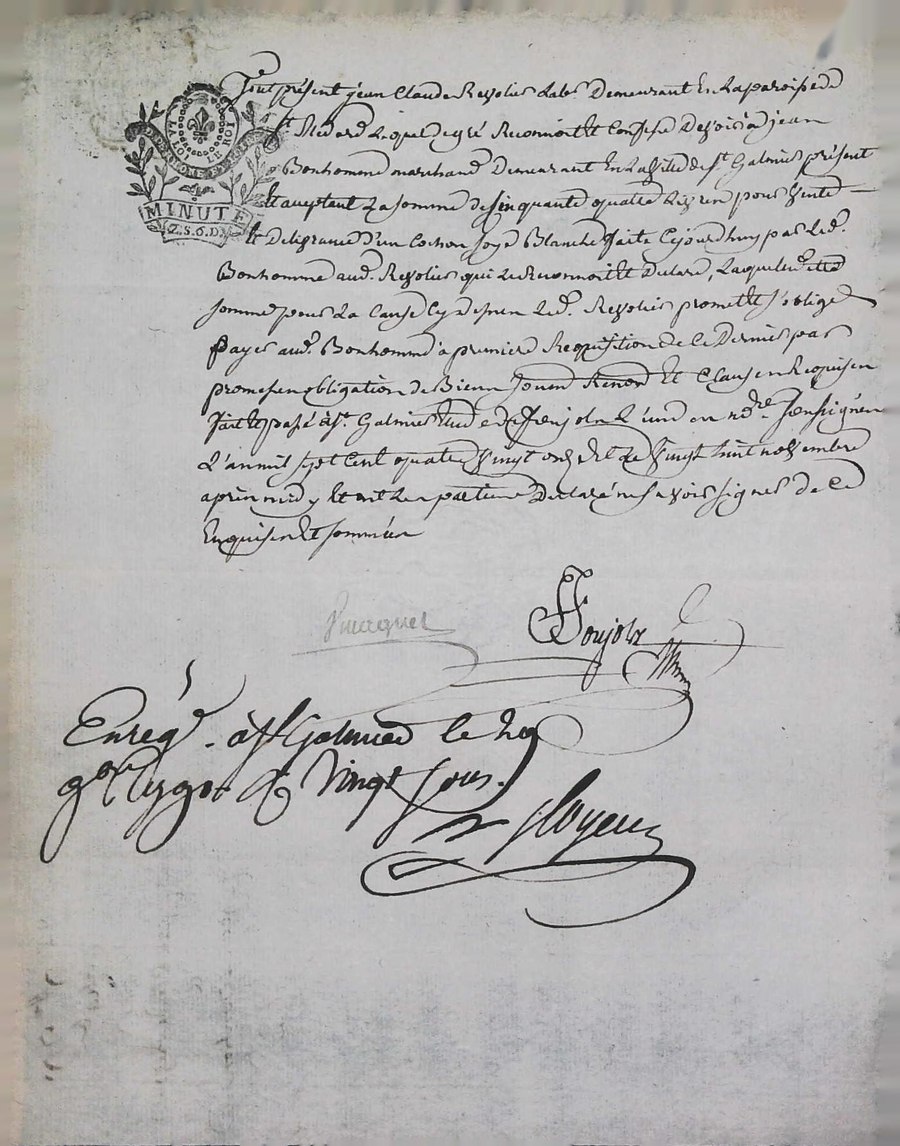 LA LOI LE ROI
MINUTE
2.S.6.D.
fout présent jean Claude Revolier Lab.r Demeurant En La paroisse de
st Medard Lequel de gré Reconnoit et Confesse Devoir à jean
Bonhomme marchand Demeurant En La Ville de St Galmier présent
Et aceptant La somme de Cinquante quatre Livres pour Vente
Et Delivrance d'un Cochon soye Blanche faite Cejourdhuy par Led.
Bonhomme aud. Revolier qui Le Reconnoit et Declare, Laquelle
somme pour La Cause Cy dessus Led. Revolier promet et s'oblige
payer aud. Bonhomme à premiere Requisition de Ce Dernier par
promesse obligation de Biens Et Clauses Requises
fait et passé à St. Galmier Etude de fonjols L'un des no.res soussignés
L'an mil sept Cent quatre Vingt onze Et Le Vingt huit novembre
après midy Et ont Les parties Declaré ne savoir signer de Ce
Enquises Et sommées
Fonjols
Enrég. à St Galmier le
Vingt sous.